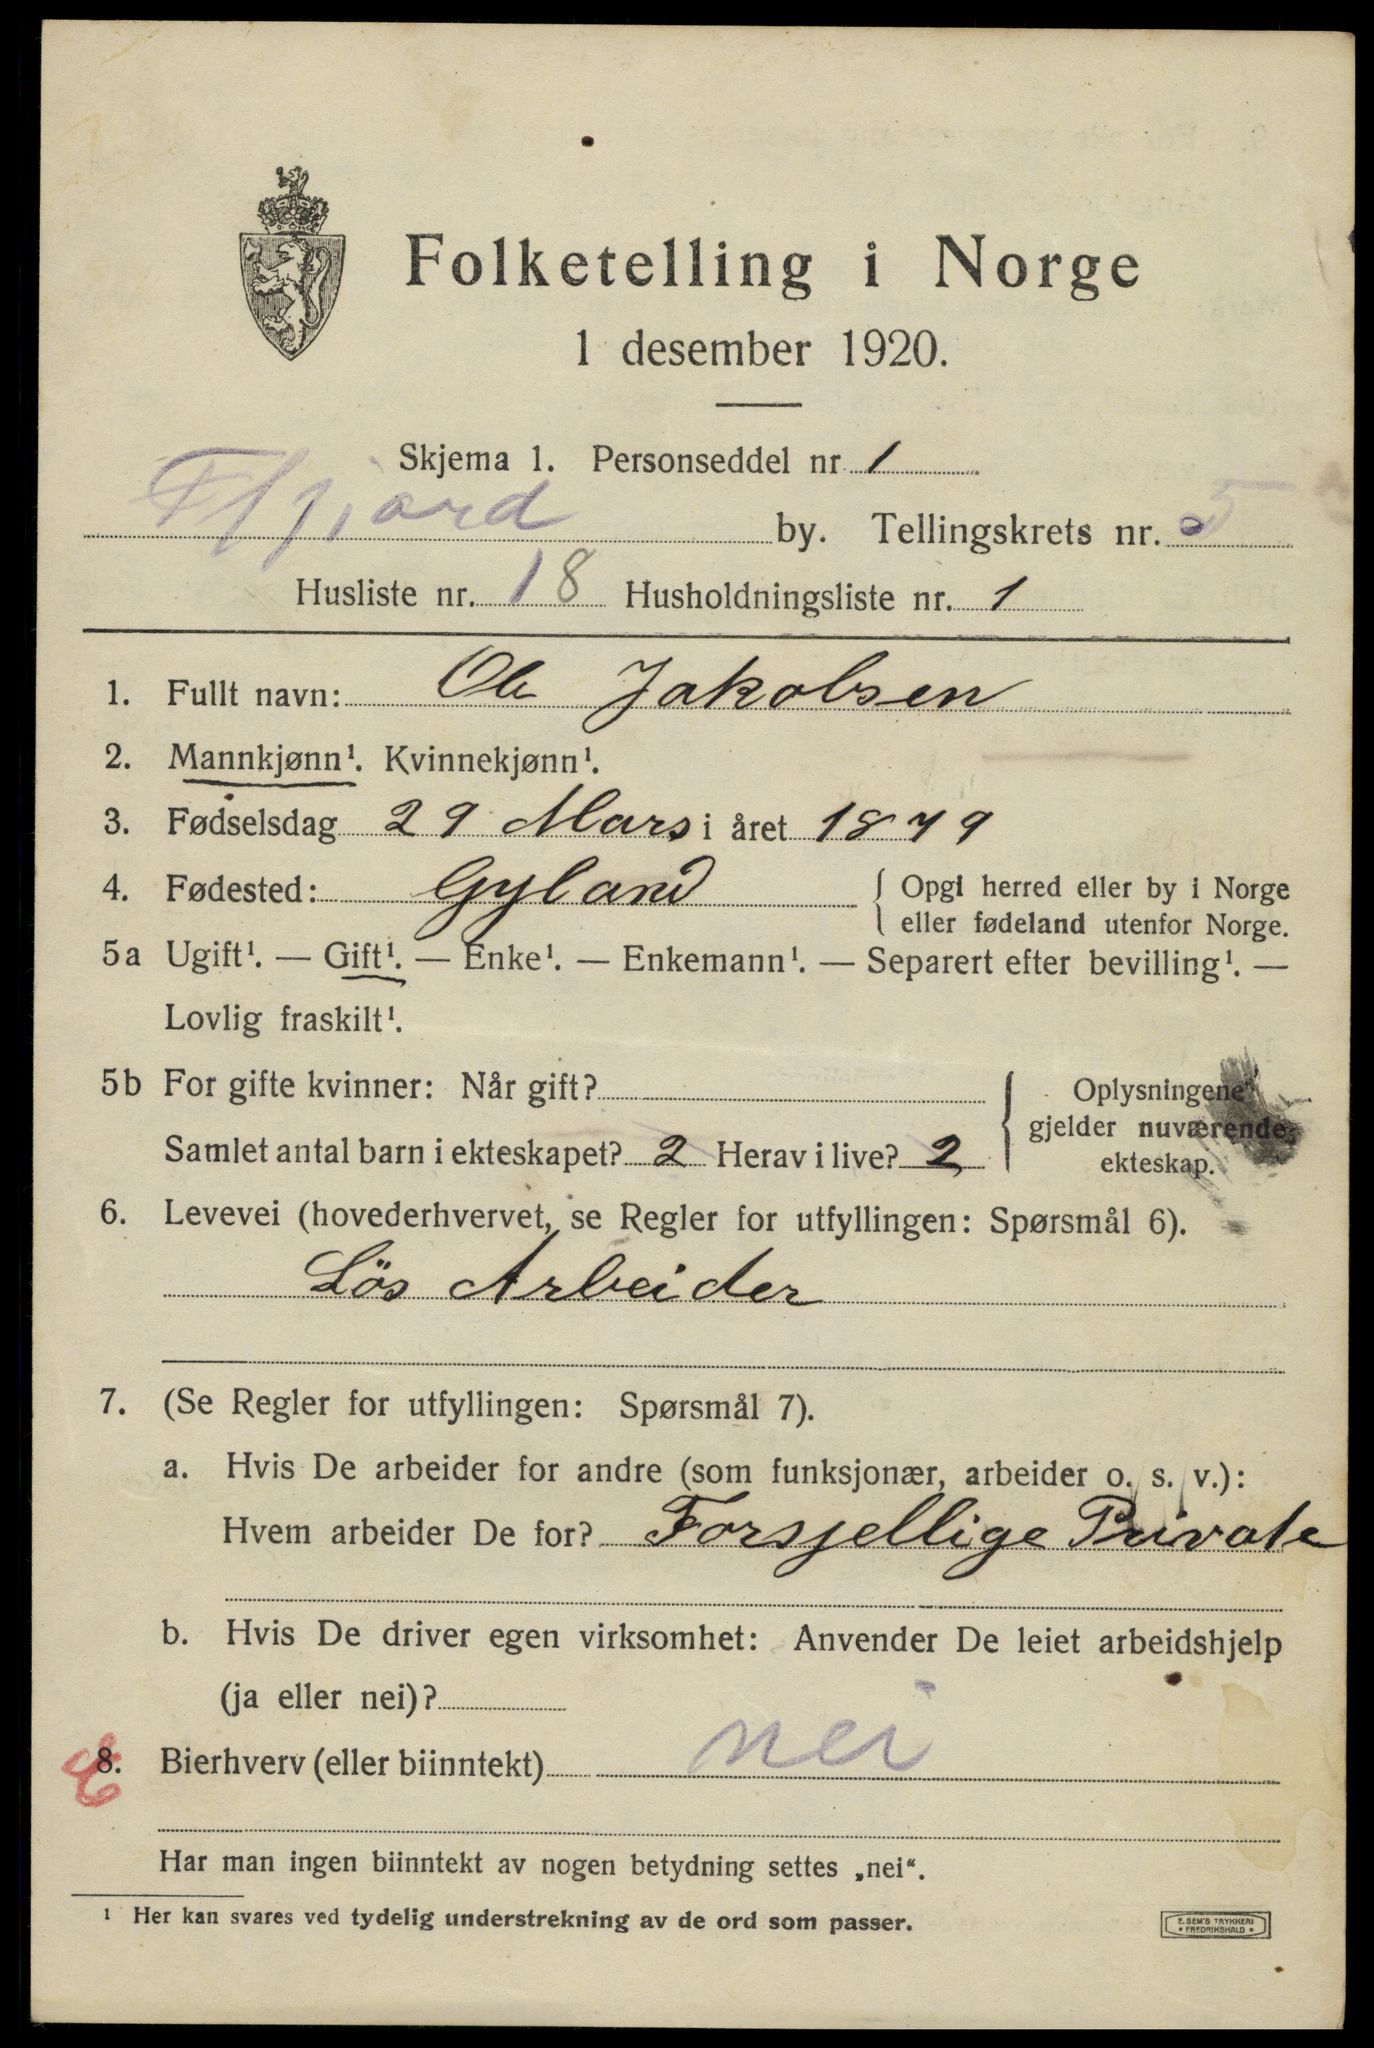 Folketelling i Norge
1 desember 1920.
Skjema 1. Personseddel nr 1
Flfjord by. Tellingskrets nr. 5
Husliste nr. 18 Husholdningsliste nr. 1
1. Fullt navn: Ole Jakobsen
2. Mannkjønn¹. Kvinnekjønn¹.
3. Fødselsdag 29 Mars i året 1879
4. Fødested: Gyland { Opgi herred eller by i Norge
eller fødeland utenfor Norge.
5a Ugift¹. — Gift¹. — Enke¹. — Enkemann¹. — Separert efter bevilling¹. —
Lovlig fraskilt¹.
5b For gifte kvinner: Når gift?
Samlet antal barn i ekteskapet? 2 Herav i live? 2
{ Oplysningene
gjelder nuværende
ekteskap.
6. Levevei (hovederhvervet, se Regler for utfyllingen: Spørsmål 6).
Lös Arbeider
7. (Se Regler for utfyllingen: Spørsmål 7).
a. Hvis De arbeider for andre (som funksjonær, arbeider o. s. v.):
Hvem arbeider De for? Forsjellige Private
b. Hvis De driver egen virksomhet: Anvender De leiet arbeidshjelp
(ja eller nei)?
8. Bierhverv (eller biinntekt) nei
Har man ingen biinntekt av nogen betydning settes „nei“.
¹ Her kan svares ved tydelig understrekning av de ord som passer.
E. SEM'S TRYKKERI
• FREDRIKSHALD •